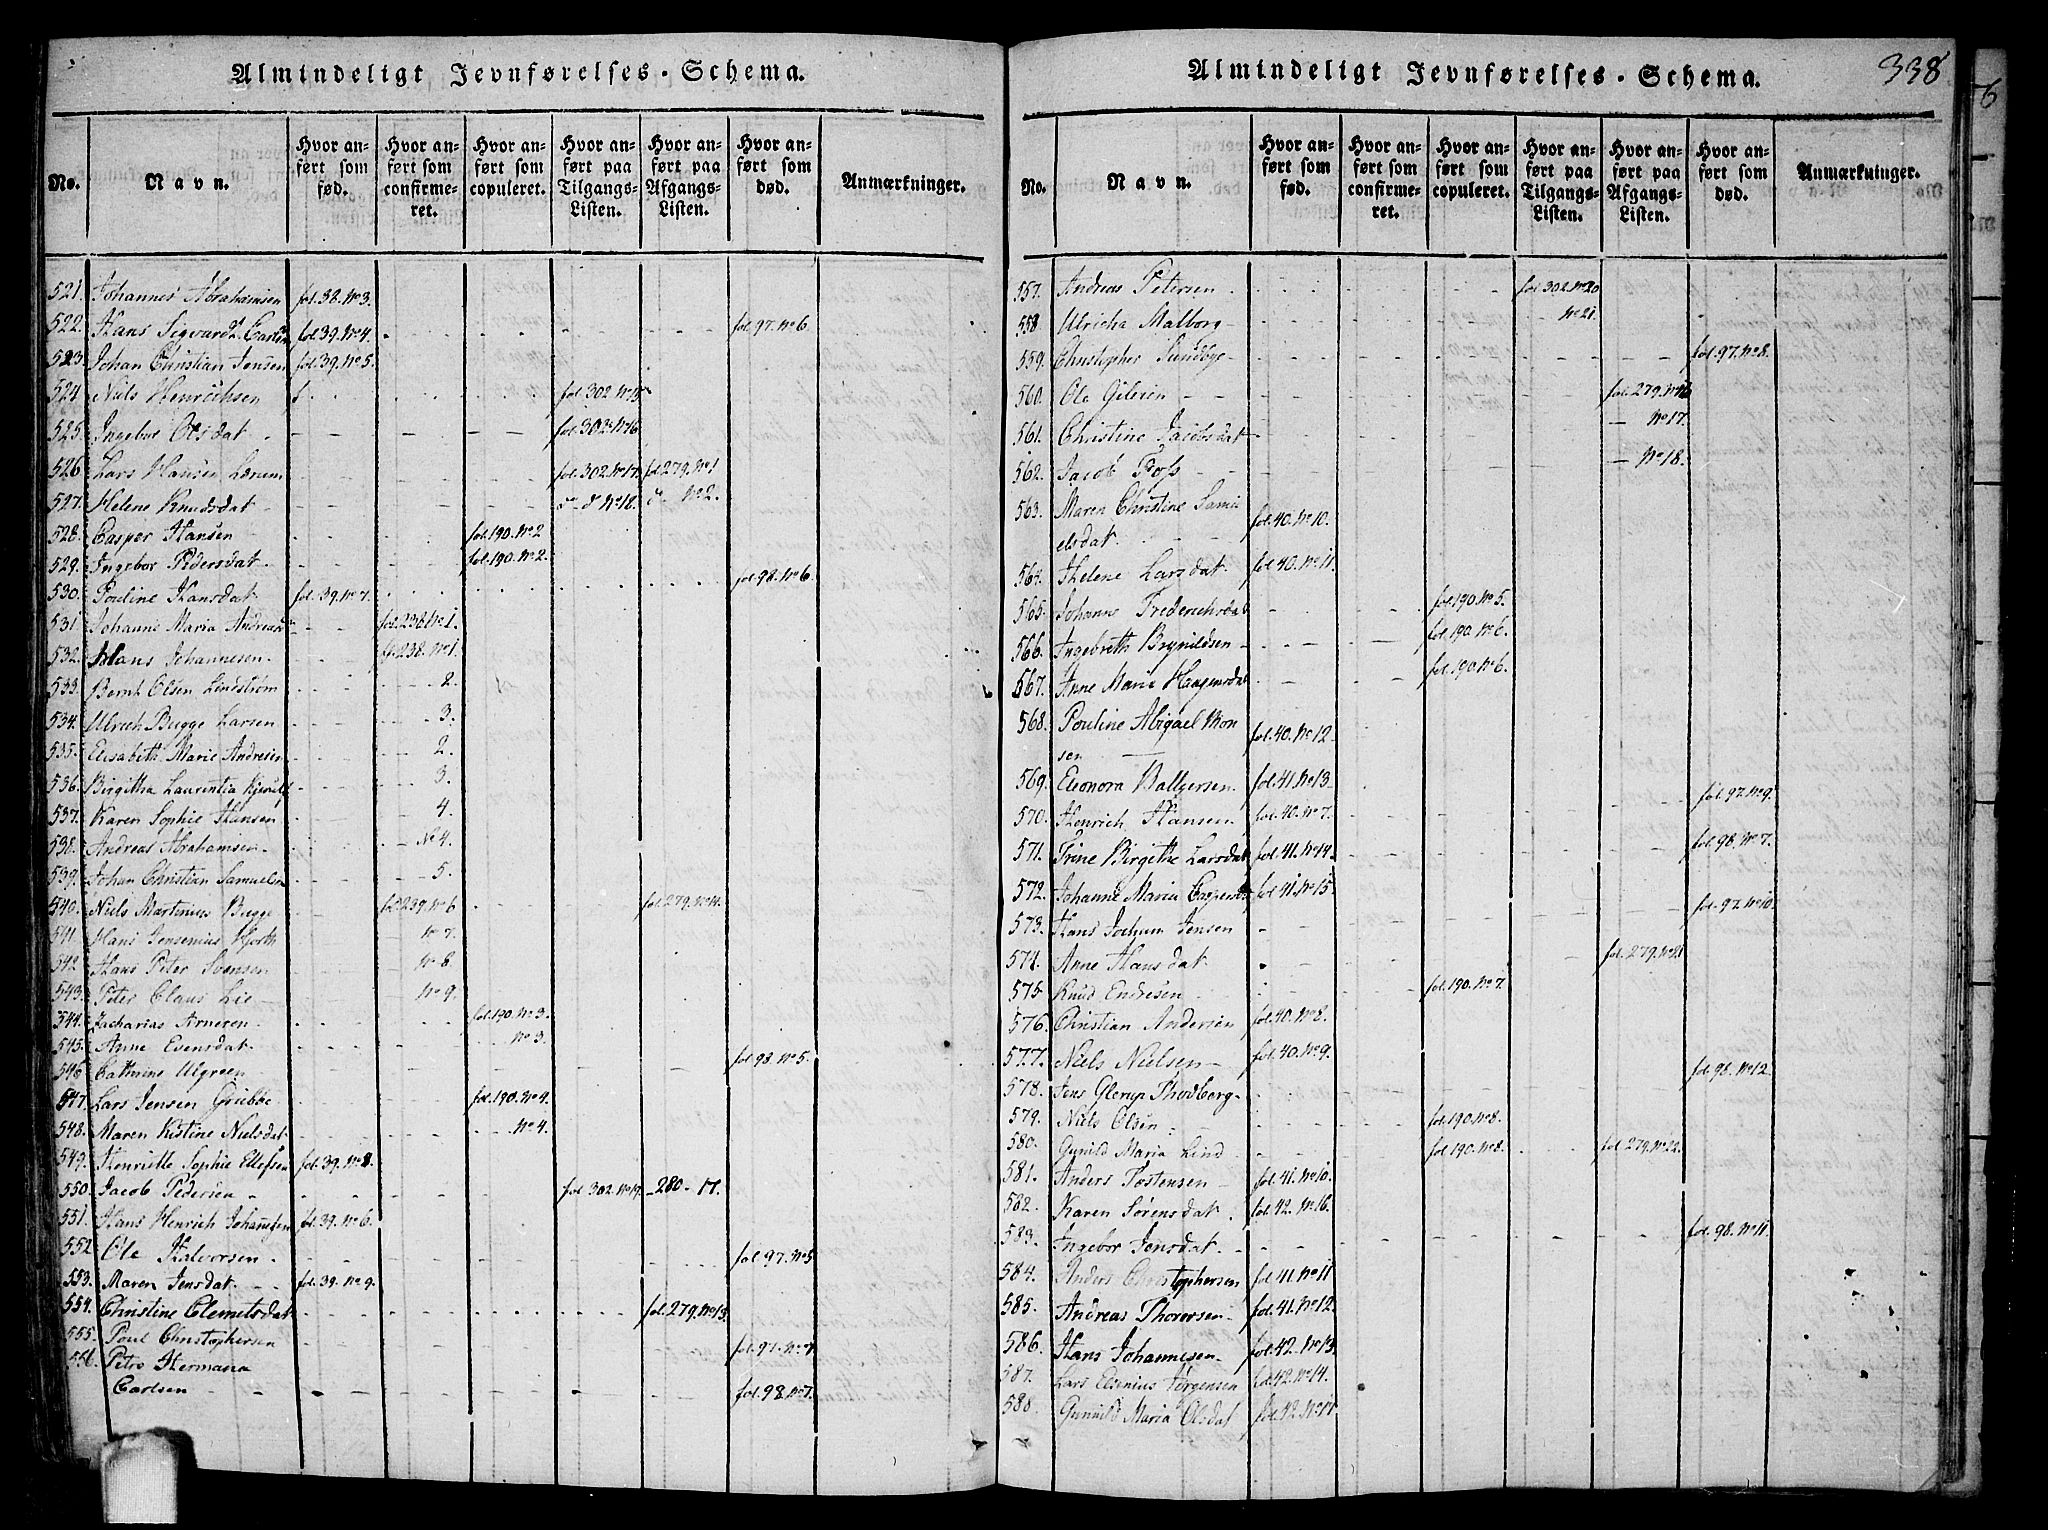 Almindeligt Jevnførelses-Schema.
No. Navn. Hvor anført som fød. Hvor anført som confirmeret. Hvor anført som copuleret. Hvor anført paa Tilgangs-Listen. Hvor anført paa Afgangs-Listen. Hvor anført som død. Anmærkninger.
521. Johannes Abrahamsen fol. 38. No 3.
522. Hans Sigvardt Carlsen fol. 39. No 4. fol. 97. No 6.
523. Johan Christian Jensen fol. 39. No 5.
524 Niels Henrichsen fol. 302 No 15
525. Ingebor Olsdat fol. 302. No 16
526. Lars Hansen Lærum fol. 302. No 17. fol. 279. No 1
527. Helene Knudsdat No 18. No 2.
528. Casper Hansen fol. 190. No 2
529. Ingebor Pedersdat fol. 190. No 2.
530. Pouline Hansdat fol. 39. No 7. fol. 98. No 6.
531 Johanne Maria Andreasd fol. 238 No 1.
532. Hans Johannesen fol. 238. No 1.
533. Bernt Olsen Lindstrøm 2.
534. Ulrich Bugge Larsen 3.
535. Elisabeth Marie Andresen 2.
536. Birgitha Laurentia 3.
537. Karen Sophie Hansen 4.
538. Andreas Abrahamsen No 4.
539. Johan Christian Samuelsen 5.
540. Niels Martinius Bugge fol. 239. No 6 fol. 279. No 4.
541. Hans Jensenius Hjorth No 7.
542 Hans Peter Svensen No 8.
543. Peter Claus Lie No 9.
544. Zacharias Arnesen fol. 190. No 3.
545. Anne Evensdat No 3.
546 Cathrine Ulgreen fol. 98. No 5.
547. Lars Jensen Gribbe fol. 190. No 4.
548. Maren Kistine Nielsdat No 4.
549. Henriette Sophie Ellefsen fol. 39. No 8.
550. Jacob Pedersen fol. 302. No 19. 280 - 17.
551. Hans Henrich Johannesen fol. 39. No 6.
552. Ole Halvorsen fol. 97. No 5
553. Maren Jensdat fol. 39. No 9.
554. Christine Clemetsdat fol. 279. No 13.
555. Poul Christophersen fol. 97. No 7
556. Petro Hermana
Carlsen fol. 98. No 7.
Almindeligt Jevnførelses-Schema. 338
No. Navn. Hvor anført som fød. Hvor anført som confirmeret. Hvor anført som copuleret. Hvor anført paa Tilgangs-Listen. Hvor anført paa Afgangs-Listen. Hvor anført som død. Anmærkninger.
557. Andreas Petersen fol. 302. No 20
558. Ulricha Malborg No 21.
559. Christopher Sundbye fol. 97. No 8.
560. Ole Gilesen fol. 279. No 16
561. Christine Jacobsdat No 17.
562. Jacob Foss No 18.
563. Maren Christine Samu
elsdat. fol. 40. No 10.
564. Helene Larsdat fol. 40. No 11.
565. Johanne Frederichsdat fol. 190. No 5.
566. Ingebreth Brynildsen fol. 190. No 6.
567. Anne Maria Haagensdat fol. 190 No 6.
568. Pouline Abigael Mon
sen fol. 40. No 12.
569. Eleonora Baltzersen fol. 41. No 13.
570. Henrich Hansen fol. 40. No 7. fol. 97. No 9.
571. Trine Birgithe Larsdat fol. 41. No 14. fol. 98. No 7.
572. Johanne Maria Caspersdat fol. 41. No 15.
573. Hans Jochum Jensen fol. 97. No 10.
574. Anne Hansdat fol. 279. No 21
575. Knud Endresen fol. 190. No 7.
576. Christian Andersen fol. 40. No 8.
577. Niels Nielsen fol. 40. No 9.
578. Jens Glerup Thodberg fol. 98. No 12
579. Niels Olsen fol. 190. No 8.
580. Gunild Maria Lind fol. 190. No 8. fol. 279. No 22.
581. Anders Tostensen fol. 41. No 10.
582. Karen Sørensdat fol. 42. No 16.
583. Ingebor Jensdat fol. 98. No 11.
584. Anders Christophersen fol. 41. No 11
585. Andreas Thorersen fol. 41. No 12.
586. Hans Johannesen fol. 42. No 13.
587. Lars Elsenius Jørgensen fol. 42. No 14.
588. Gunnild Maria Olsdat fol. 42. No 17